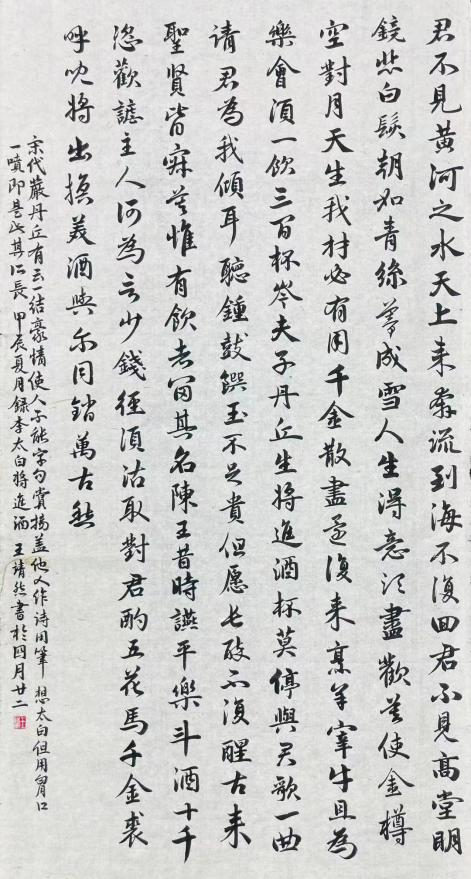 君不見黃河之水天上来奔流到海不復回君不見高堂明
鏡悲白髮朝如青絲暮成雪人生得意須盡歡莫使金樽
空對月天生我材必有用千金散盡還復来烹羊宰牛且為
樂會須一飲三百杯岑夫子丹丘生將進酒杯莫停與君歌一曲
请君為我傾耳聽鍾鼓饌玉不足貴但愿長醉不復醒古来
聖賢皆寂莫惟有飲者留其名陳王昔時讌平樂斗酒十千
恣歡謔主人何為言少錢徑須沽取對君酌五花馬千金裘
呼兒將出換美酒與尔同銷萬古愁
宋代嚴丹丘有云一结豪情使人不能字句賞摘蓋他人作诗用筆想太白但用胸口
一噴即是此其所長 甲辰夏月録李太白將進酒 王靖然書於四月廿二